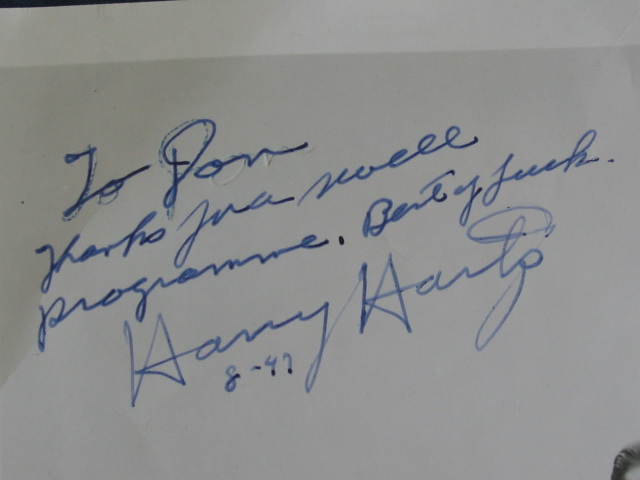 To Don
Thanks for a swell
programme. Best of luck.
Harry Hartz
8-47